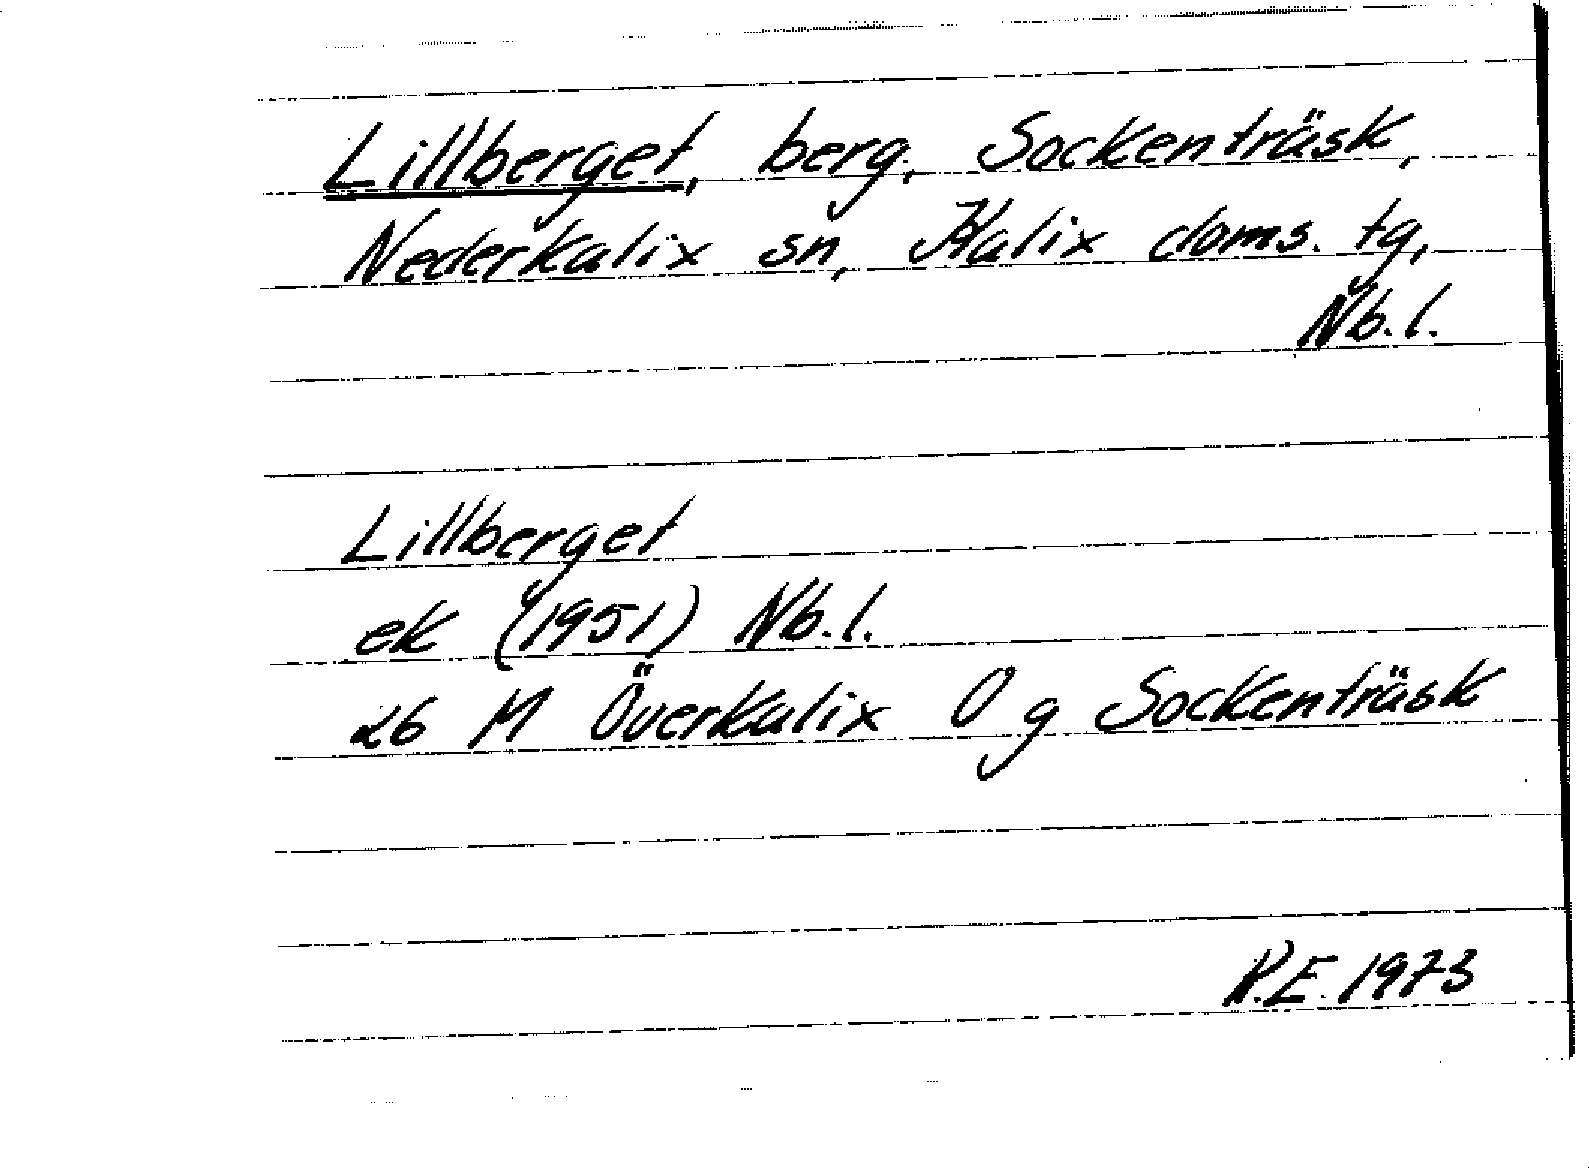 Lillberget, berg, Sockenträsk,
Nederkalix sn, Kalix doms. tg,
Nb.l.
Lillberget
ek (1951) Nb.l.
26 M Överkalix O g Sockenträsk
E. 1973